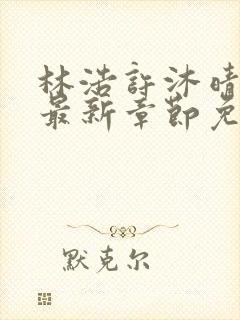 林浩許沐晴
最新章節免
默克尔